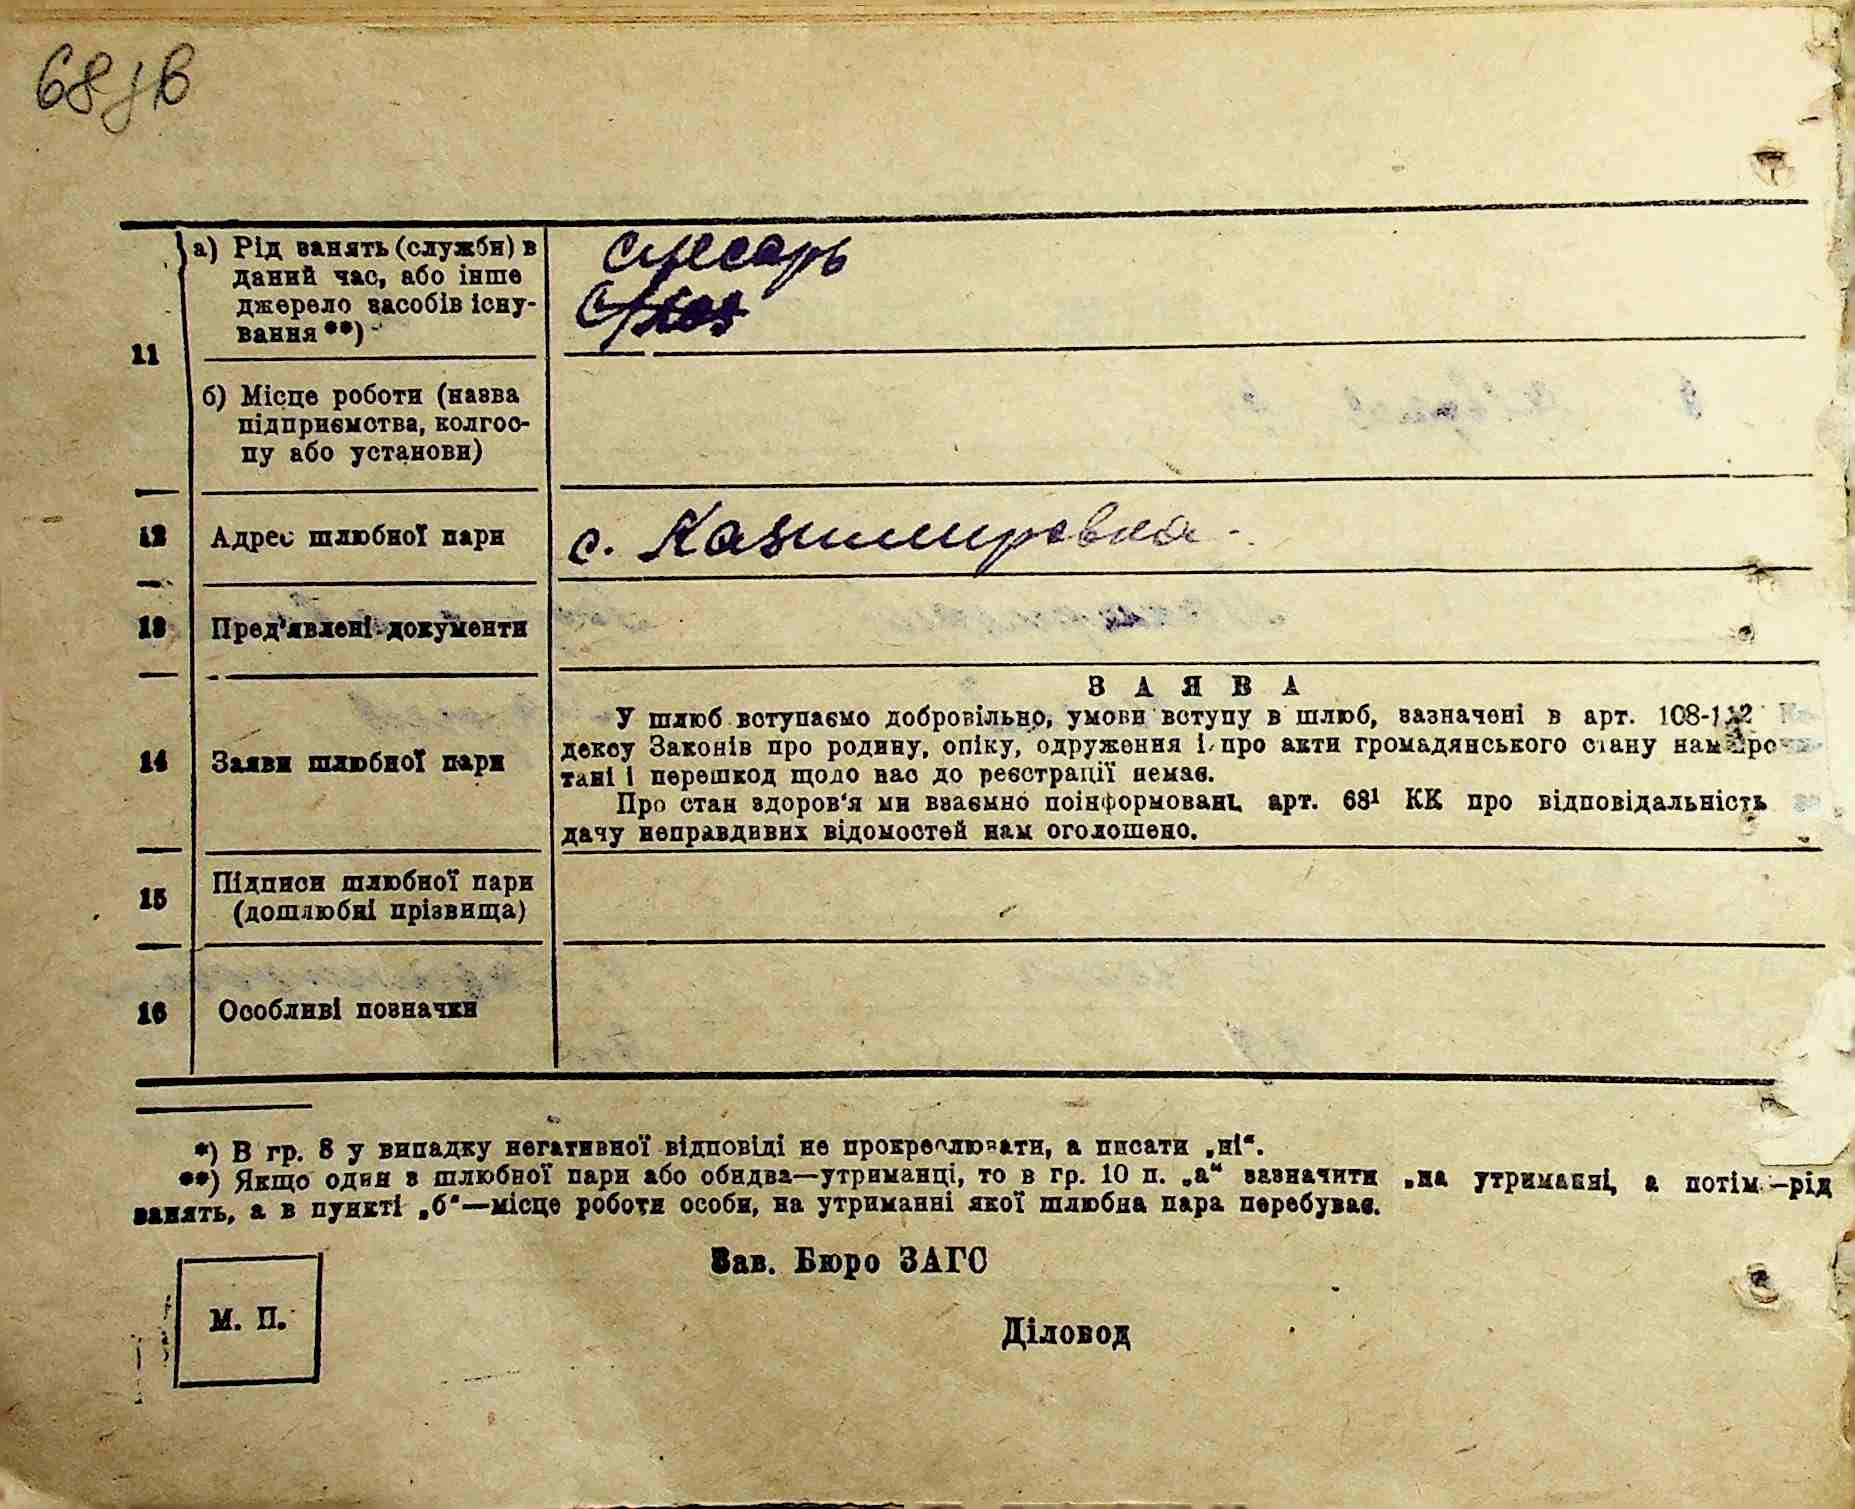 68
11
а) Рід занять (служби) в
даний час, або інше
джерело засобів існу-
вання **)
слесарь
б) Місце роботи (назва
підприємства, колгос-
пу або установи)
12 Адрес шлюбної пари
с. Казимировка
13 Пред'явлені документи
14 Заяви шлюбної пари
ЗАЯВА
У шлюб вступаємо добровільно, умови вступу в шлюб, зазначені в арт. 108-112
дексу Законів про родину, опіку, одруження і про акти громадянського стану нам
тані і перешкод щодо нас до реєстрації немає.
Про стан здоров'я ми взаємно поінформовані, арт. 68¹ КК про відповідальність
дачу неправдивих відомостей нам оголошено.
15 Підписи шлюбної пари
(дошлюбні прізвища)
16 Особливі позначки
*) В гр. 8 у випадку негативної відповіді не прокреслювати, а писати „ні“.
**) Якщо один з шлюбної пари або обидва—утриманці, то в гр. 10 п. „а“ зазначити „на утриманні, а потім—рід
занять, а в пункті „б“—місце роботи особи, на утриманні якої шлюбна пара перебуває.
Зав. Бюро ЗАГС
М. П.
Діловод